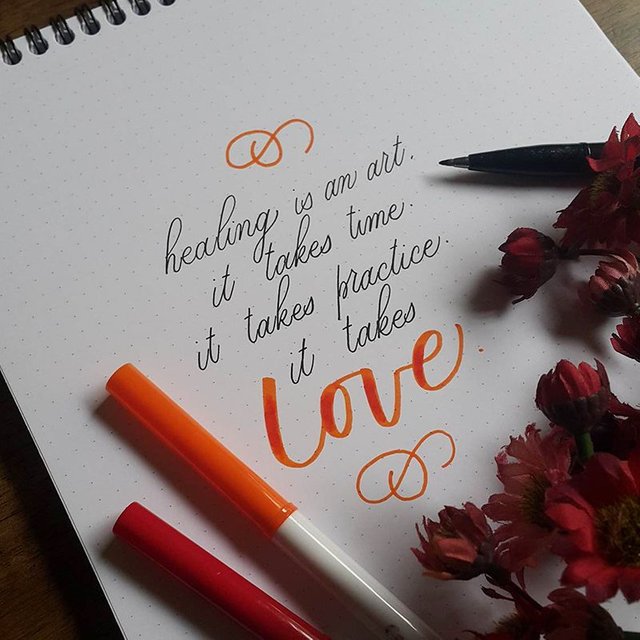 healing is an art.
it takes time.
it takes practice.
it takes
Love.